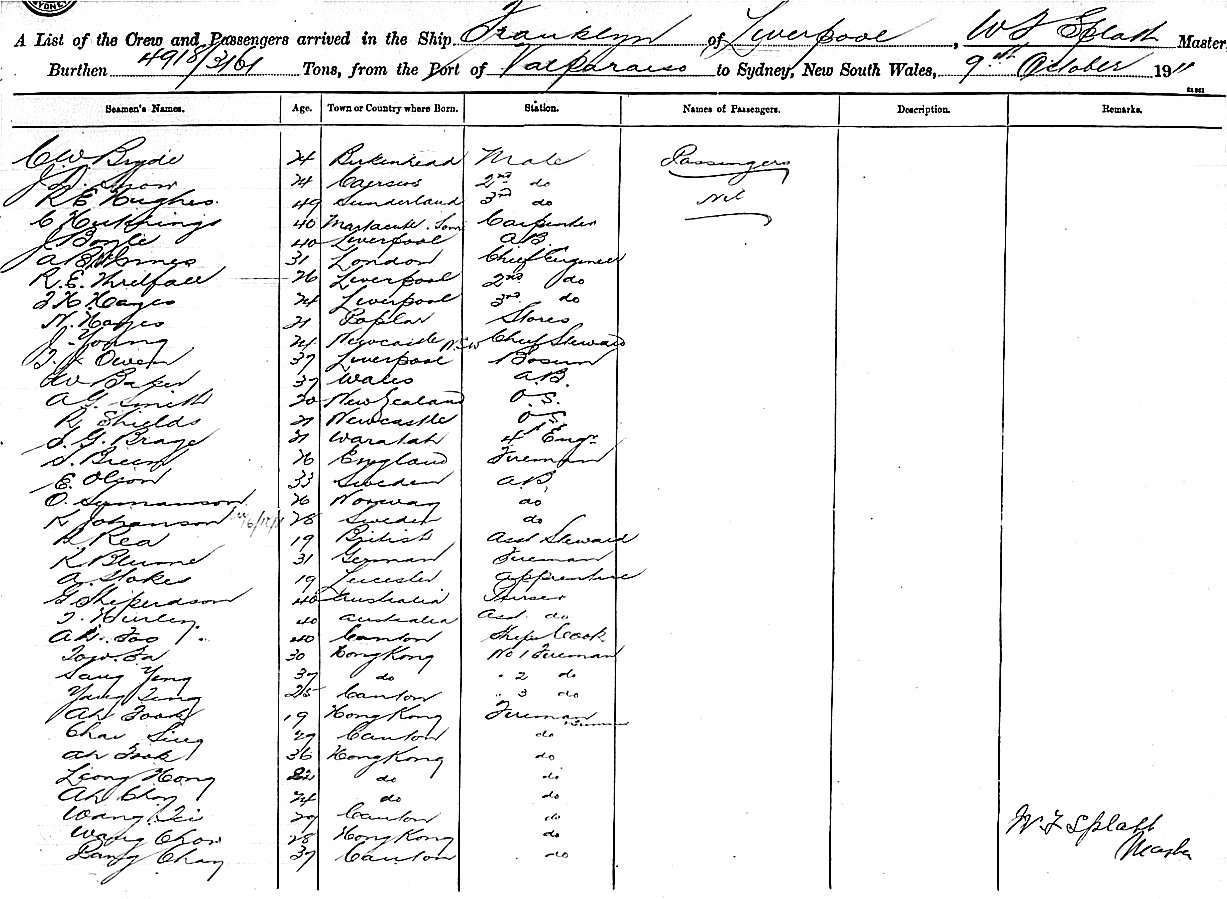 SYDNEY
A List of the Crew and Passengers arrived in the Ship Franklyn of Liverpool, W F Splatt Master,
Burthen 4918/3161 Tons, from the Port of Valparaiso to Sydney, New South Wales, 9th October 1911
Seamen's Names. Age. Town or Country where Born. Station. Names of Passengers. Description. Remarks.
C W Bryde 24 Birkenhead Mate Passengers
24 Caersws 2nd do
R E Hughes 49 Sunderland 3rd do Nil
C Hutchings 40 Carpenter
J Boyle 40 Liverpool A B
31 London Chief Engineer
R. E. Threlfall 26 Liverpool 2nd do
F H Hayes 24 Liverpool 3rd do
N. Hayes 21 Poplar Stores
J. Young 24 Newcastle NSW Chief Steward
Owen 37 Liverpool Bosun
W Baker 37 Wales A.B.
A G Smith 20 New Zealand O.S.
R Shields 21 Newcastle O S
G. Braye 21 Waratah 4th Engr
Breen 26 England Fireman
E. Olson 33 Sweden A B
O. 26 Norway do
K Johanson 28 Sweden do
Rea 19 British Asst Steward
K Blume 31 German Fireman
A. Stokes 19 Leicester Apprentice
G Sheperdson 40 Australia Purser
T. Hurley 40 Australia Asst do
Ah Foo 40 Canton Ships Cook
30 Hong Kong No 1 Fireman
Sang Yeng 37 do " 2 do
Yang 25 Canton " 3 do
Ah Fook 19 Hong Kong Fireman
Chas Sing 29 Canton do
Ah Fook 36 Hong Kong do
Leong Hong 22 do do
Ah Choy 24 do do
Wang 29 Canton do
Wang Chow 28 Hong Kong do
Chay 37 Canton do
W F Splatt
Master